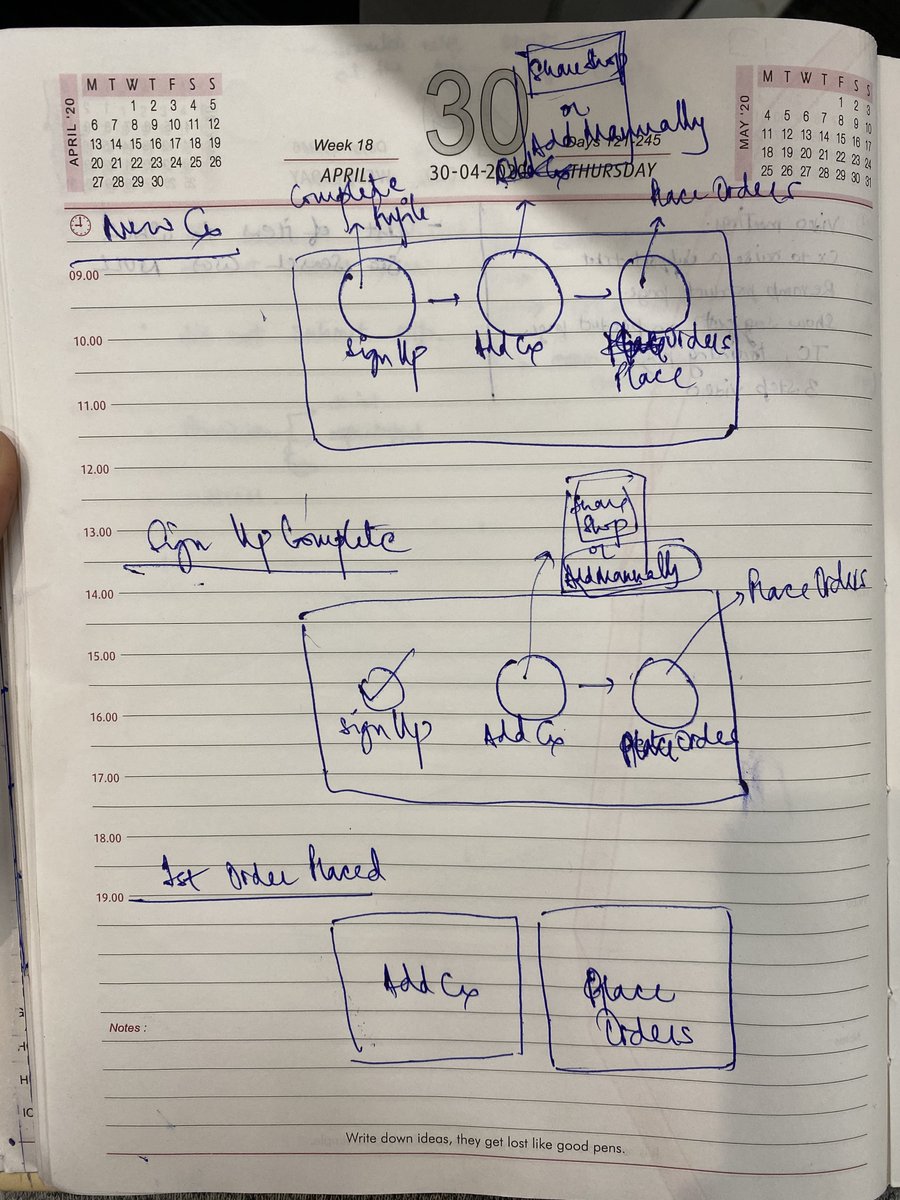 APRIL '20
M T W T F S S
1 2 3 4 5
6 7 8 9 10 11 12
13 14 15 16 17 18 19
20 21 22 23 24 25 26
27 28 29 30
Week 18
APRIL
30
30-04-2020
Days 121-245
THURSDAY
MAY '20
M T W T F S S
1 2 3
4 5 6 7 8 9 10
11 12 13 14 15 16 17
18 19 20 21 22 23 24
25 26 27 28 29 30 31
Share Shop
or
Add Manually
Add Cx
Complete
Profile
Place Orders
New Cx
09.00
10.00
Sign Up
Add Cx
Orders
Place
11.00
12.00
Share
Shop
or
Add Manually
13.00
Sign Up Complete
14.00
Place Orders
15.00
16.00
Sign Up
Add Cx
Place Order
17.00
18.00
1st Order Placed
19.00
Add Cx
Place
Orders
Notes :
Write down ideas, they get lost like good pens.